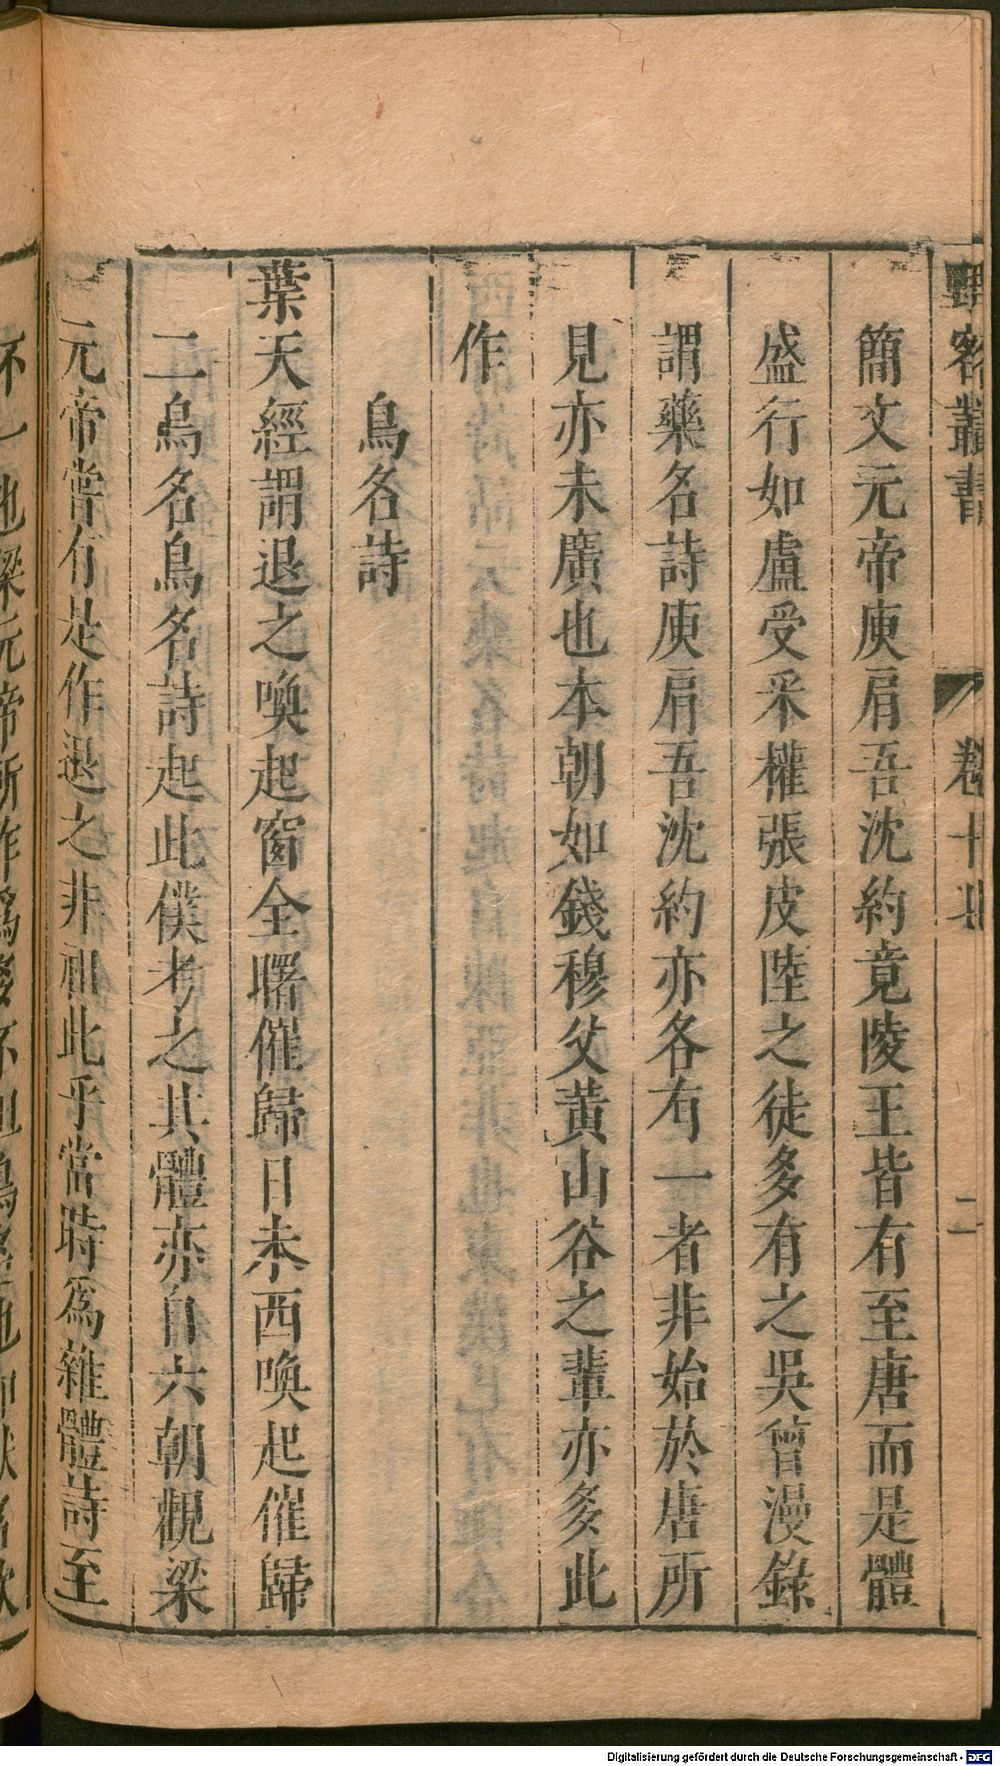 野客叢書
卷十七
二
簡文元帝庾肩吾沈約竟陵王皆有至唐而是體
盛行如盧受采權張皮陸之徒多有之吳曾漫錄
謂藥名詩庾肩吾沈約亦各有一者非始於唐所
見亦未廣也本朝如錢穆父黃山谷之輩亦多此
作
鳥名詩
葉天經謂退之喚起窗全曙催歸日未西喚起催歸
二鳥名鳥名詩起此僕考之其體亦自六朝觀梁
元帝嘗有是作退之非祖此乎當時為雜體詩至
不一也梁元帝所作為多不
Digitalisierung gefördert durch die Deutsche Forschungsgemeinschaft - DFG